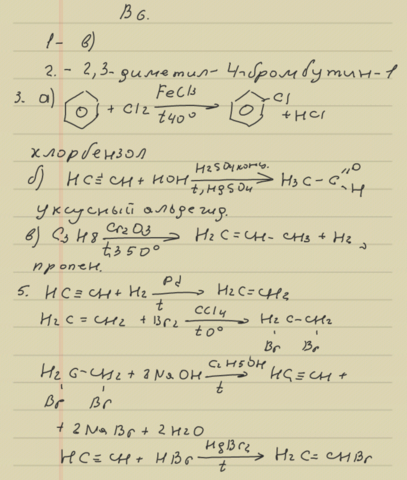 В 6.
1 - в)
2. - 2,3-диметил-4-бромбутин-1
3. а) + Cl2 FeCl3 t40° → Cl + HCl
хлорбензол
б) HC≡CH + HOH H2SO4конц. t, HgSO4 → H3C-C=O H
уксусный альдегид.
в) C3H8 Cr2O3 t,350° → H2C=CH-CH3 + H2,
пропен.
5. HC≡CH + H2 Pd t → H2C=CH2
H2C=CH2 + Br2 CCl4 t0° → H2C-CH2
Br Br
H2C-CH2 + 2NaOH C2H5OH t → HC≡CH +
Br Br
+ 2NaBr + 2H2O
HC≡CH + HBr HgBr2 t → H2C=CHBr